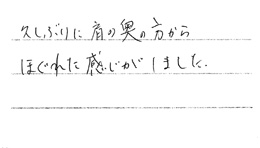 久しぶりに肩の奥の方から
ほぐれた感じがしました.